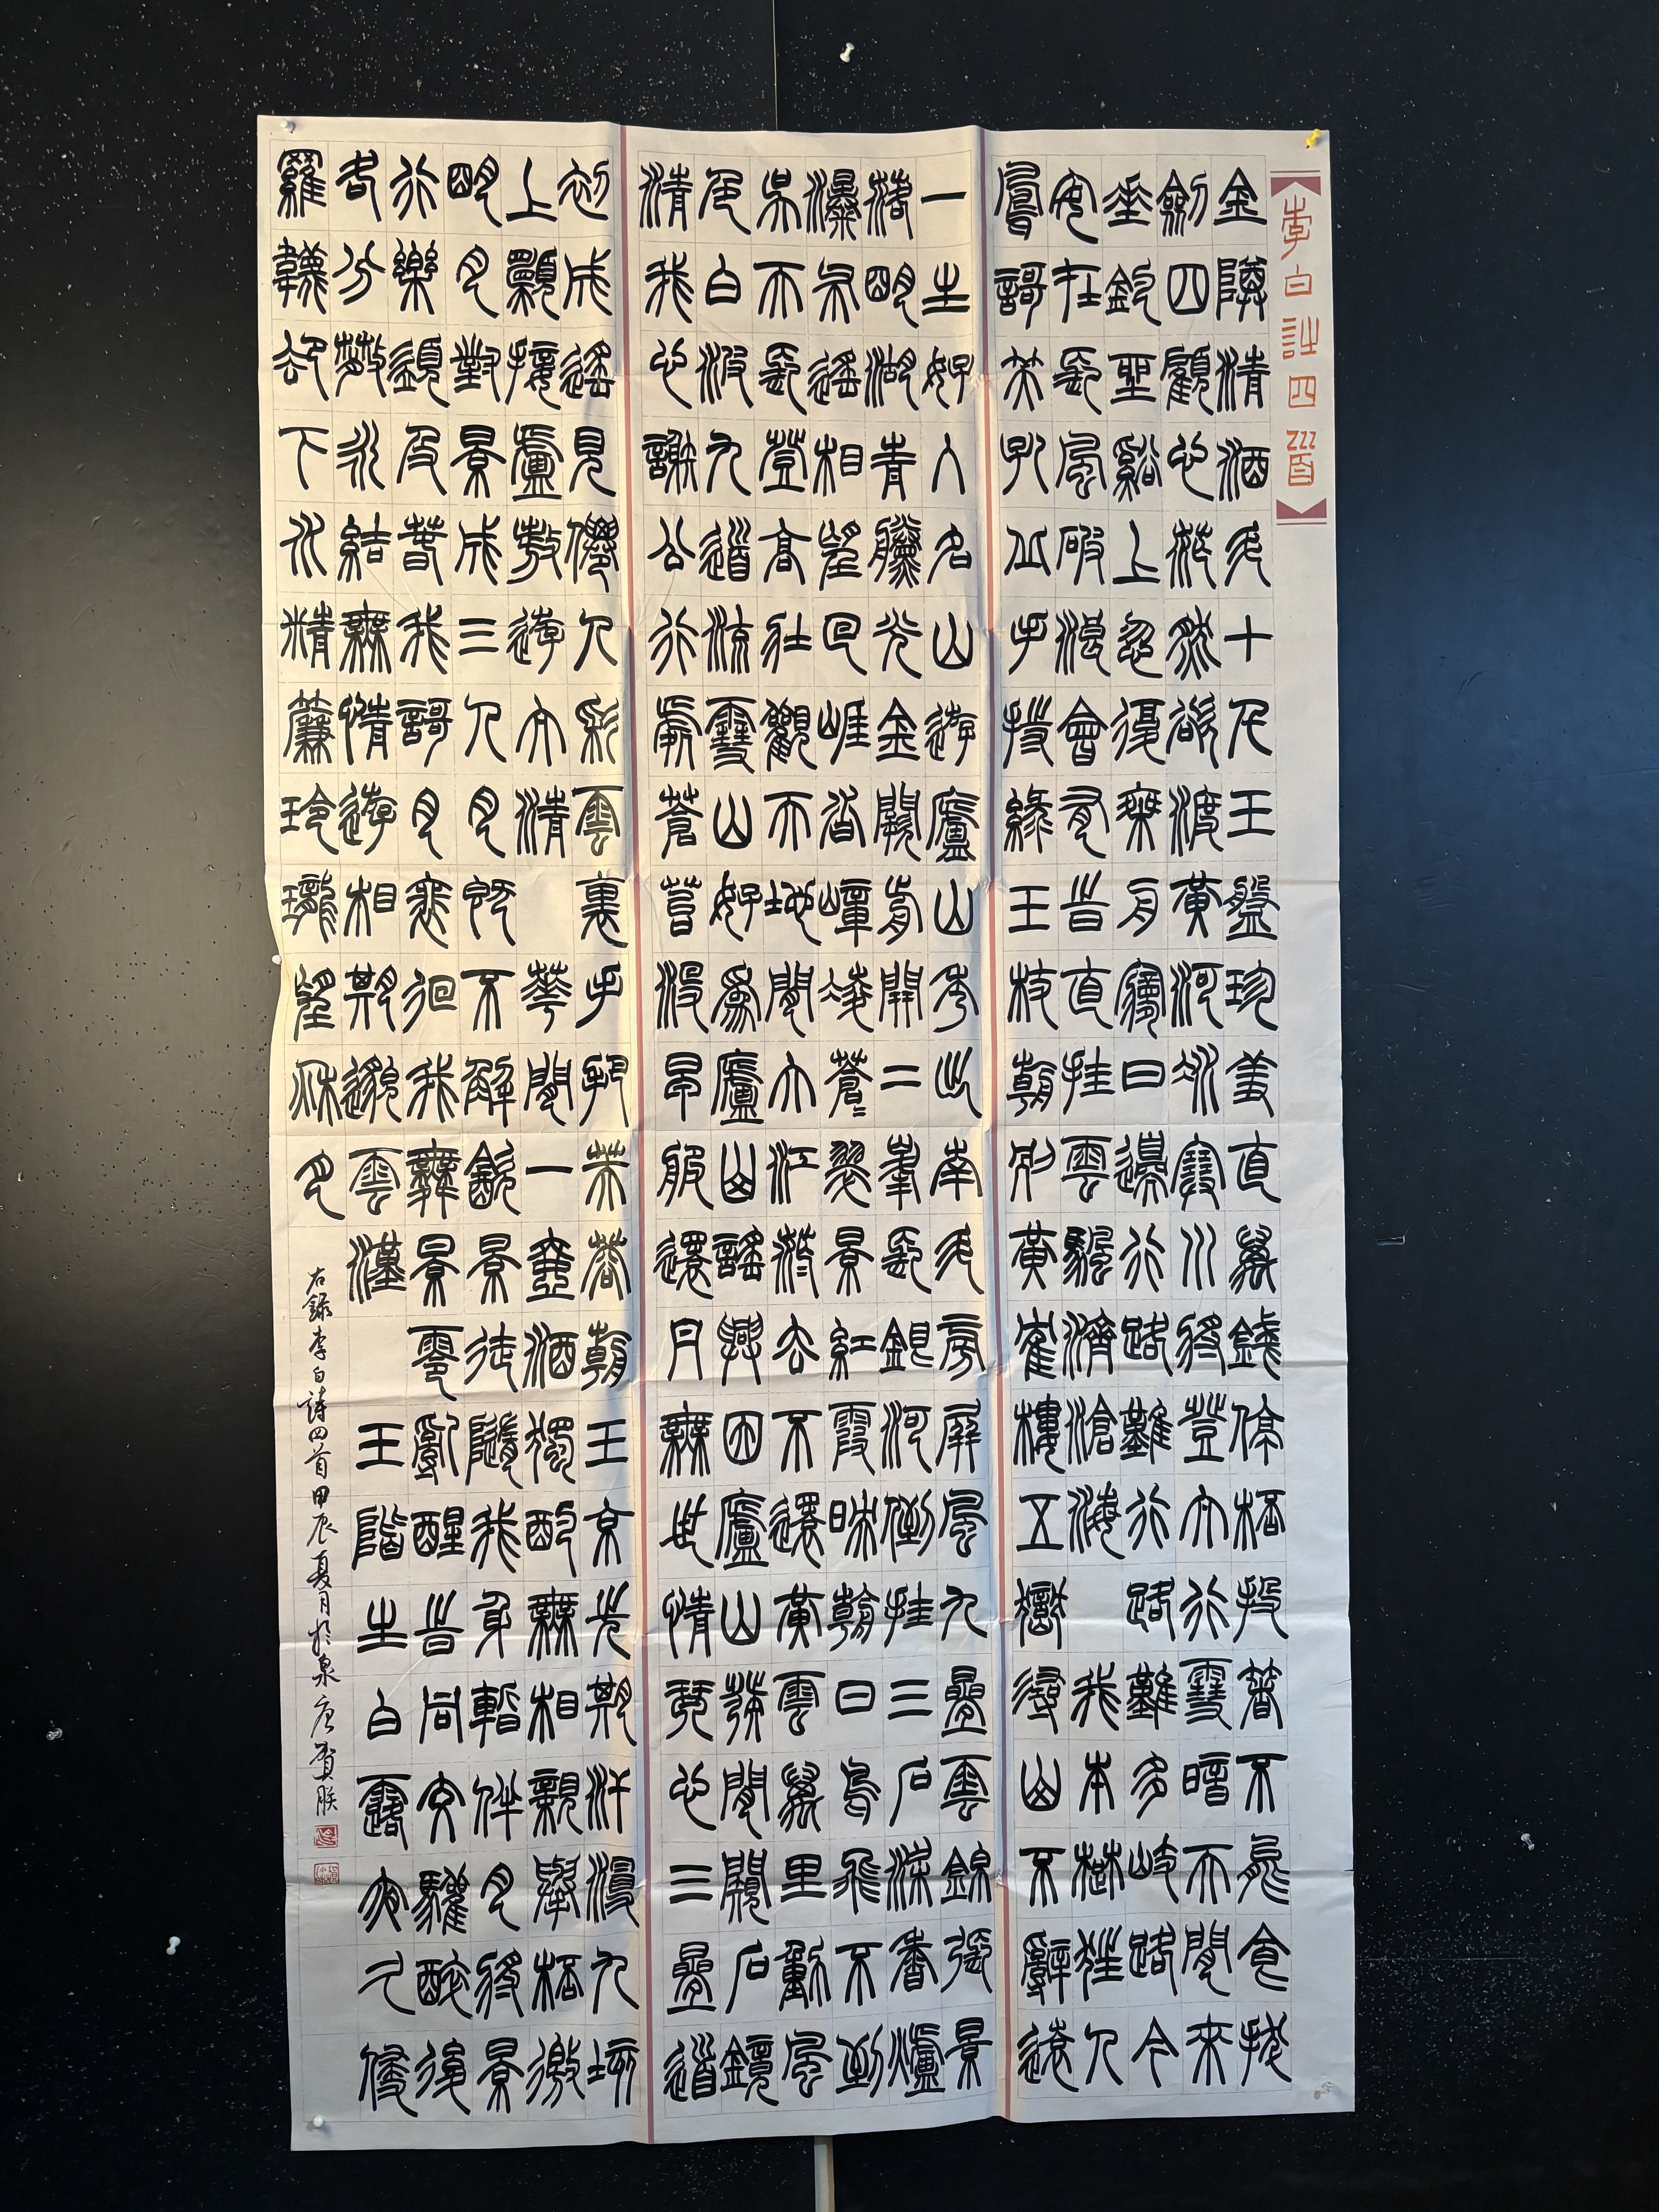 李白詩四首
金樽清酒斗十千玉盤珍羞直萬錢停杯投箸不能食拔
劍四顧心茫然欲渡黃河冰塞川將登太行雪暗天閒來
垂釣坐溪上忽復乘舟夢日邊行路難行路難多歧路今
安在長風破浪會有時直挂雲帆濟滄海 我本楚狂人
鳳歌笑孔丘手持綠玉杖朝別黃鶴樓五嶽尋山不辭遠
一生好入名山遊廬山秀出南斗傍屏風九疊雲錦張影
落明湖青黛光金闕前開二峯長銀河倒挂三石梁香爐
瀑布遙相望回崖沓嶂凌蒼〻翠影紅霞映朝日鳥飛不到
吳天長登高壯觀天地間大江茫去不還黃雲萬里動風
色白波九道流雪山好為廬山謠興因廬山發閒窺石鏡
清我心謝公行處蒼苔沒早服還丹無世情琴心三疊道
初成遙見僊人彩雲裏手把芙蓉朝玉京先期汗漫九垓
上願接盧敖遊太清 華間一壺酒獨酌無相親舉杯邀
明月對景成三人月既不解飲景徒隨我身暫伴月將景
行樂須及春我歌月裵徊我舞景零亂醒時同交歡醉後
各分散永結無情遊相期邈雲漢 玉階生白露夜久侵
羅韈卻下水精簾玲瓏望秋月
右錄李白詩四首甲辰夏月於泉唐賀朕